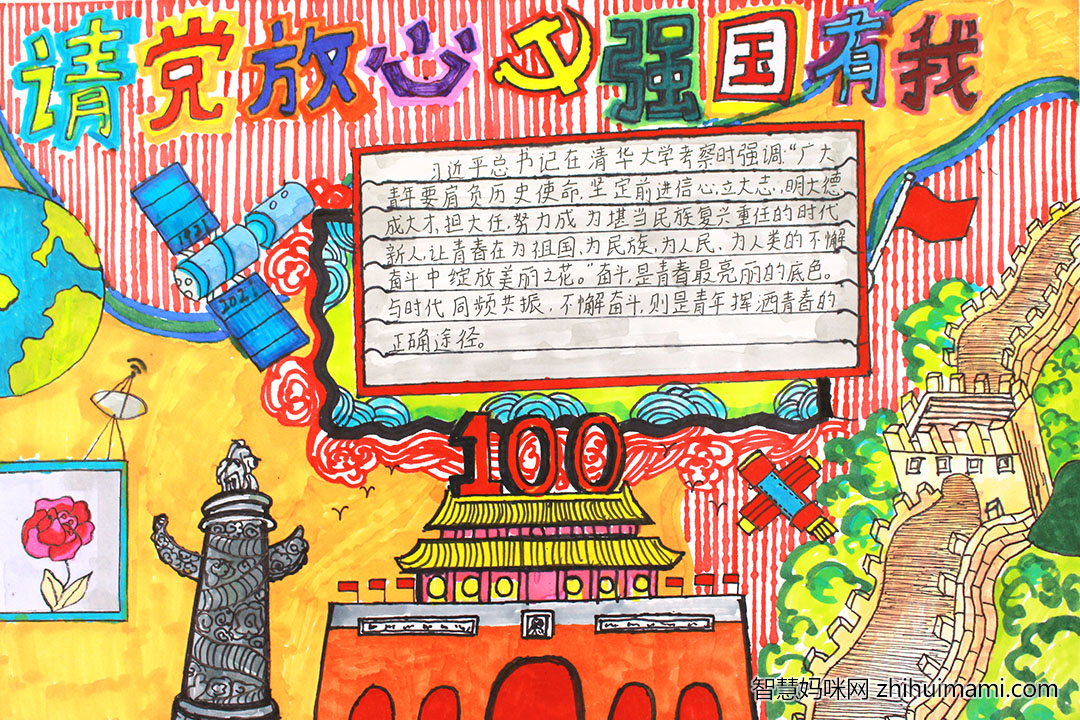 请党放心强国有我
习近平总书记在清华大学考察时强调:“广大
青年要肩负历史使命,坚定前进信心,立大志,明大德,
成大才,担大任,努力成为堪当民族复兴重任的时代
新人,让青春在为祖国,为民族,为人民,为人类的不懈
奋斗中绽放美丽之花。”奋斗,是青春最亮丽的底色。
与时代同频共振,不懈奋斗,则是青年挥洒青春的
正确途径。
1921
2021
100
智慧妈咪网 zhihuimami.com